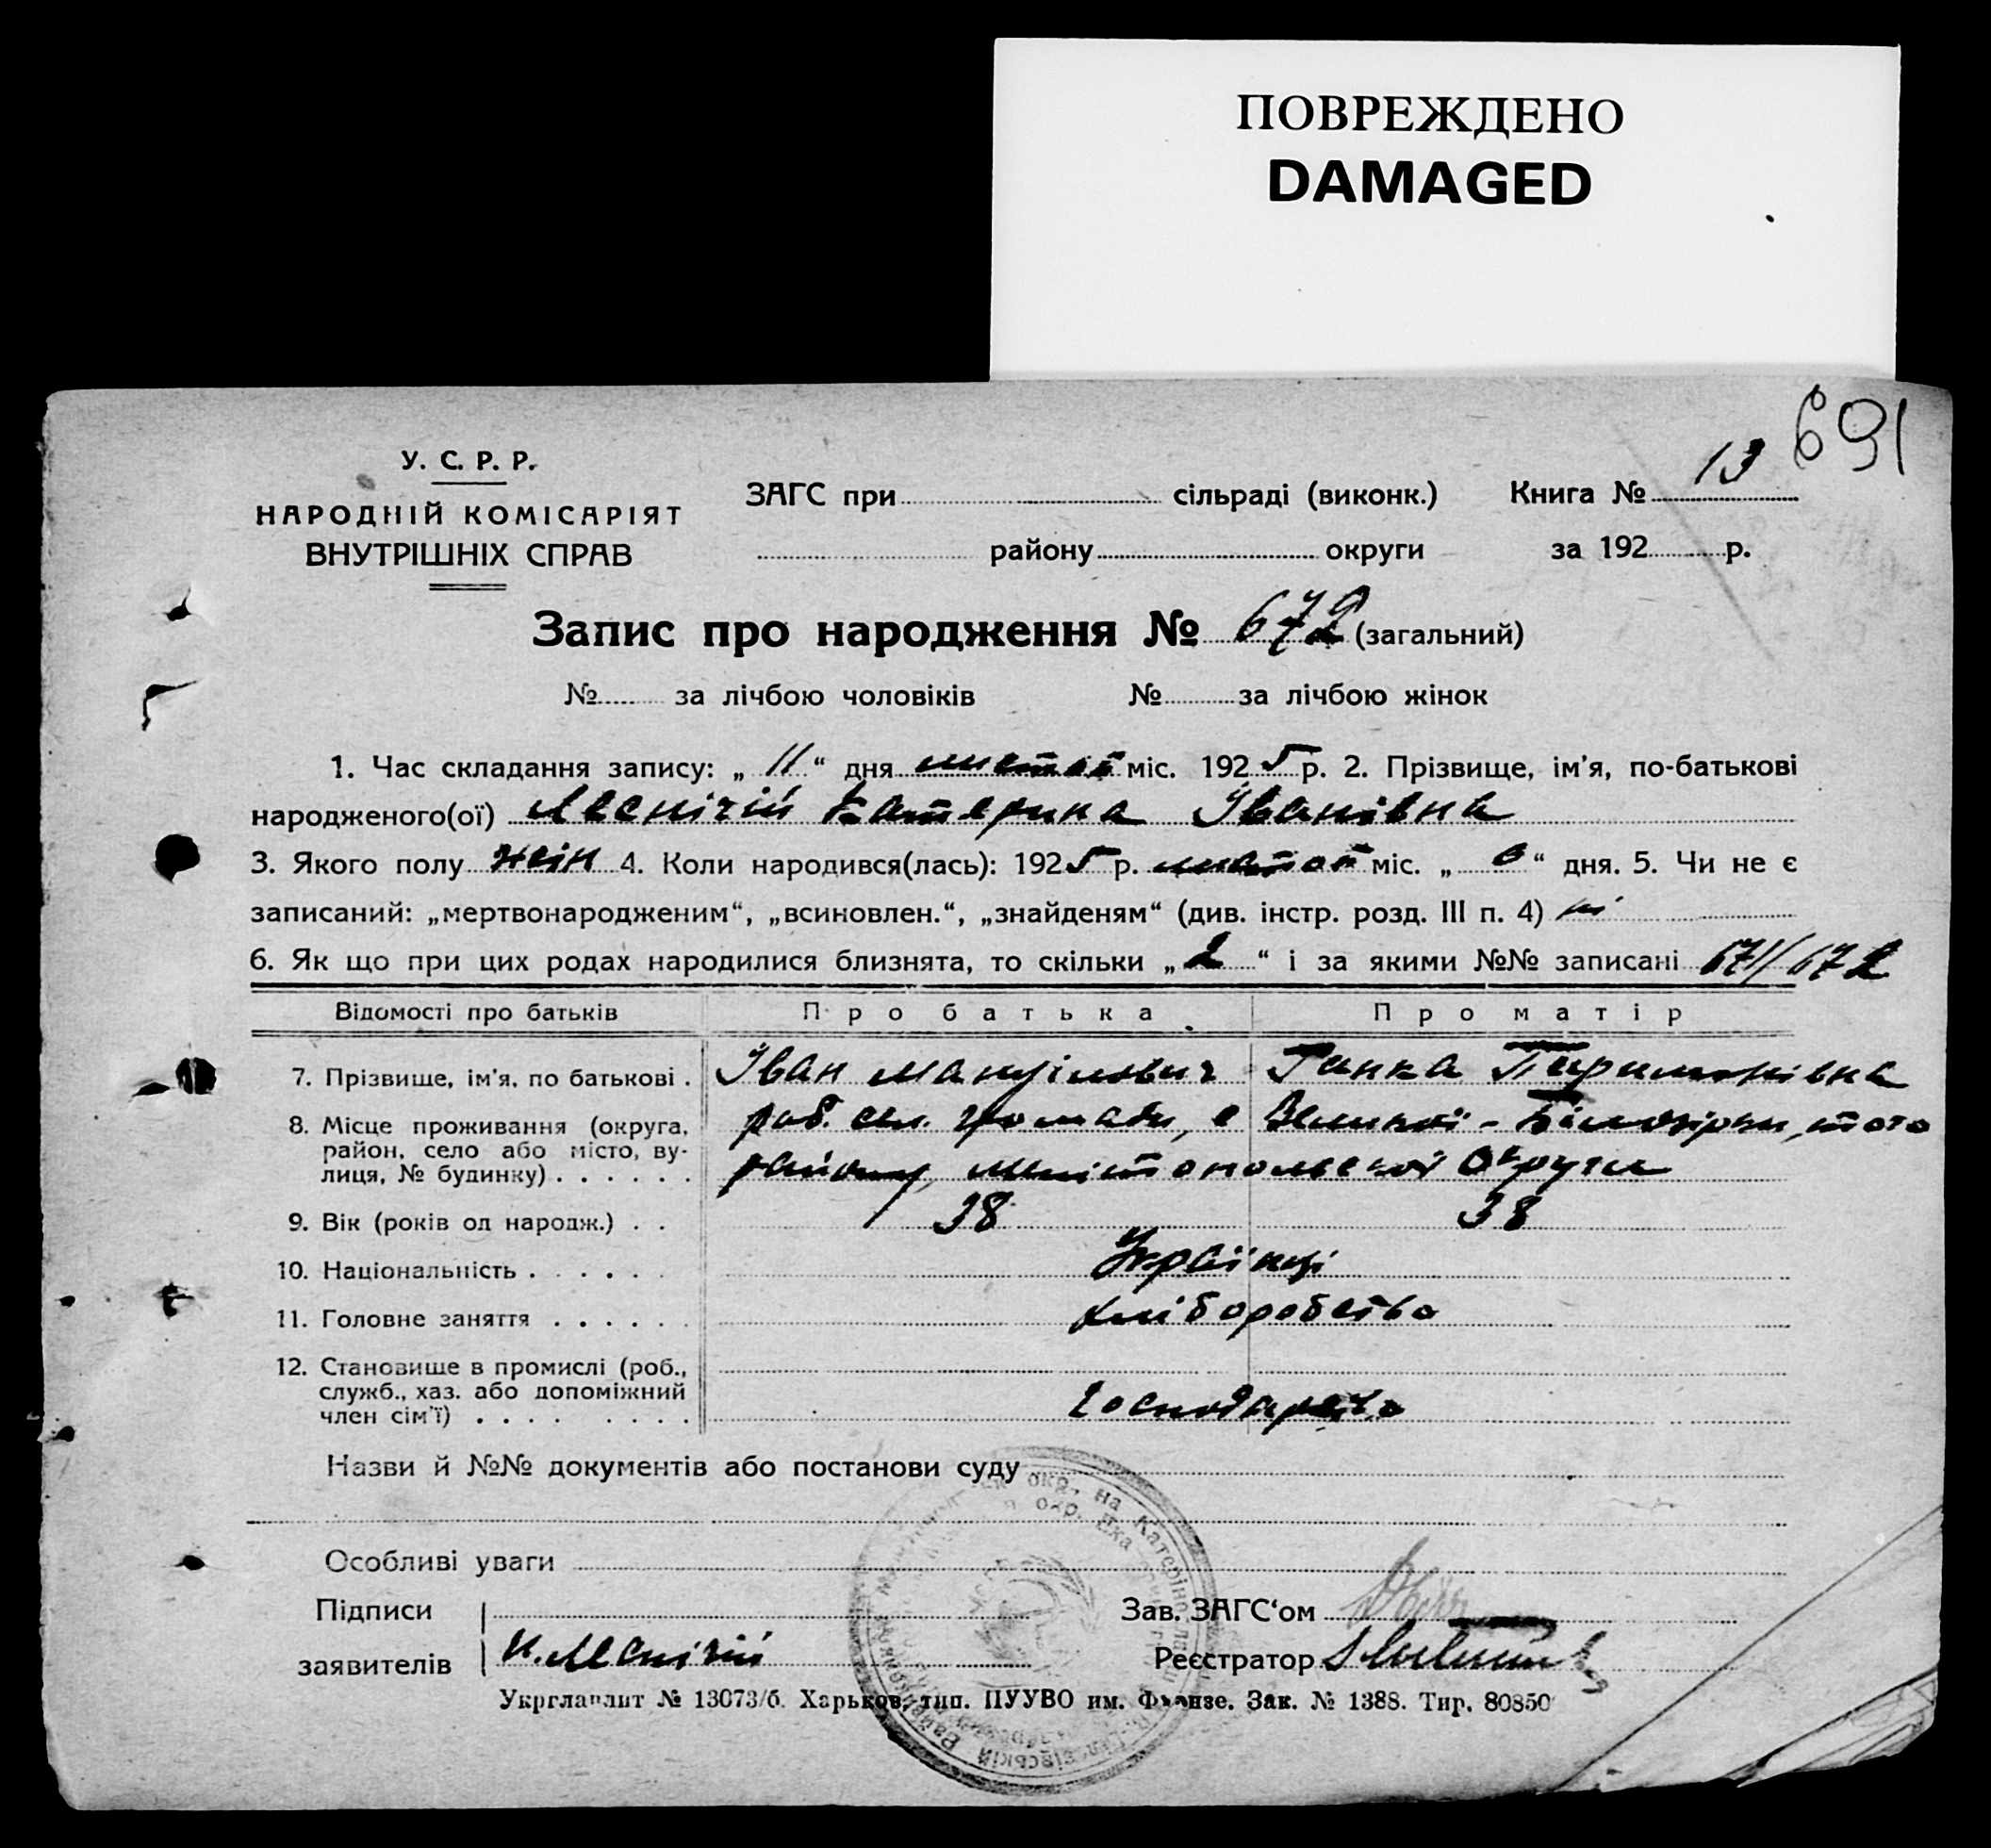 ПОВРЕЖДЕНО
DAMAGED
691
У. С. Р. Р.
НАРОДНІЙ КОМІСАРІЯТ
ВНУТРІШНІХ СПРАВ
ЗАГС при сільраді (виконк.) Книга № 13
району округи за 192 р.
Запис про народження № 672 (загальний)
№ за лічбою чоловіків № за лічбою жінок
1. Час складання запису: „ 11 “ дня листоп міс. 1925 р. 2. Прізвище, ім'я, по-батькові
народженого(ої) Леснічій Катерина Іванівна
3. Якого полу жін 4. Коли народився(лась): 1925 р. листоп міс. „ 6 “ дня. 5. Чи не є
записаний: „мертвонародженим“, „всиновлен.“, „знайденям“ (див. інстр. розд. III п. 4) ні
6. Як що при цих родах народилися близнята, то скільки „ 2 “ і за якими №№ записані 671/672
Відомості про батьків Про батька Про матір
7. Прізвище, ім'я, по батькові . Іван Мануілович Ганна
8. Місце проживання (округа, район, село або місто, вулиця, № будинку) . . . . . . громади, с Великої-Білозірки, того
району, Мелітопольської Округи
9. Вік (років од народж.) . . 38 38
10. Національність . . . . . . Українці
11. Головне заняття . . . . . . хліборобство
12. Становище в промислі (роб., служб., хаз. або допоміжний член сім'ї) . . . . . . . . Господарство
Назви й №№ документів або постанови суду
Особливі уваги
Підписи Зав. ЗАГС‘ом
заявителів И. Леснічій Реєстратор
Укрглавлит № 13073/б. Харьков, тип. ПУУВО им. Фрунзе. Зак. № 1388. Тир. 80850